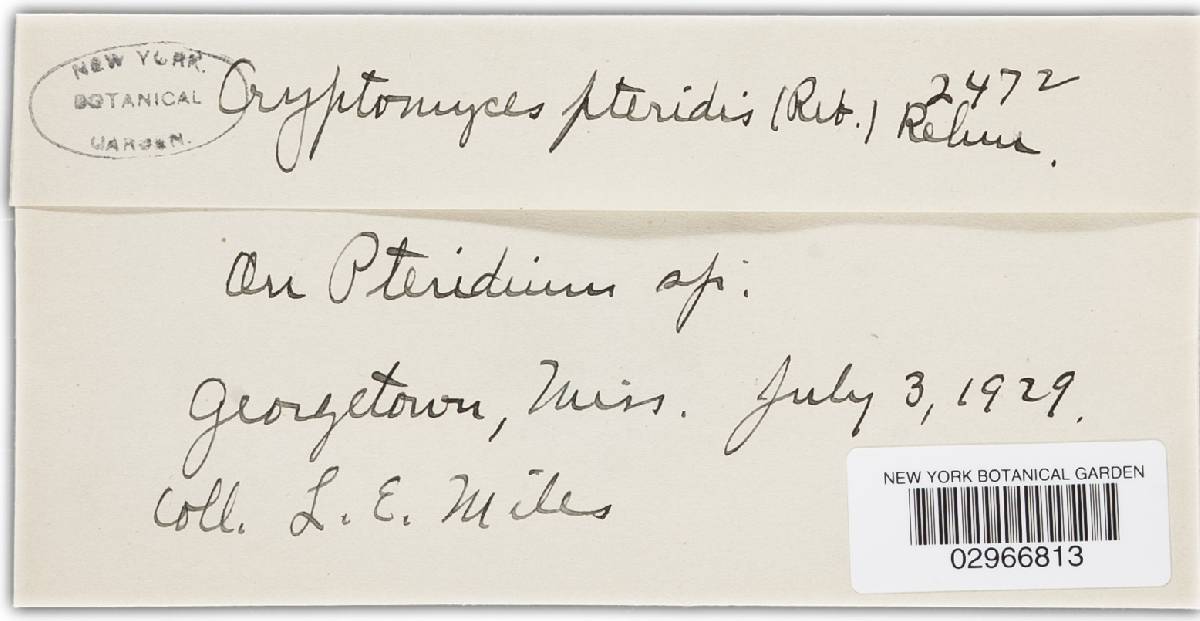 NEW YORK
BOTANICAL
GARDEN.
Cryptomyces pteridis (Reb.) Rehm.
2472
On Pteridium sp.
Georgetown, Miss. July 3, 1929.
Coll. L. E. Miles
NEW YORK BOTANICAL GARDEN
02966813